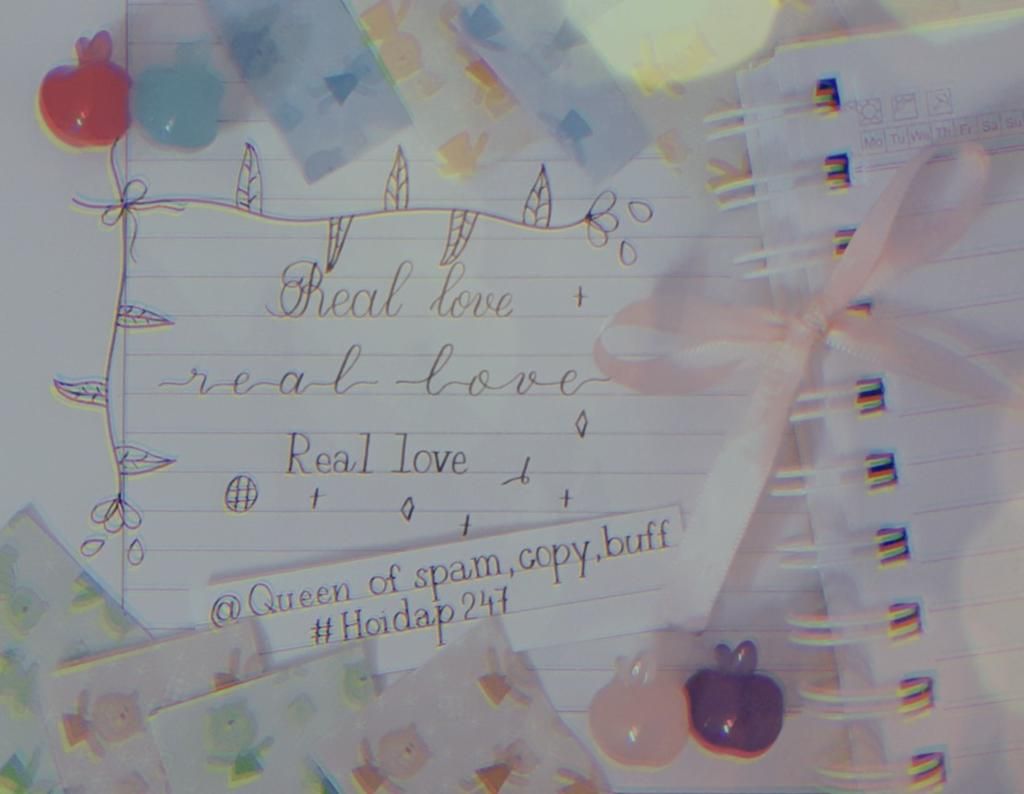 Mo Tu We Th Fr Sa Su
Real love
real love
Real love
@Queen of spam,copy,buff
#Hoidap247